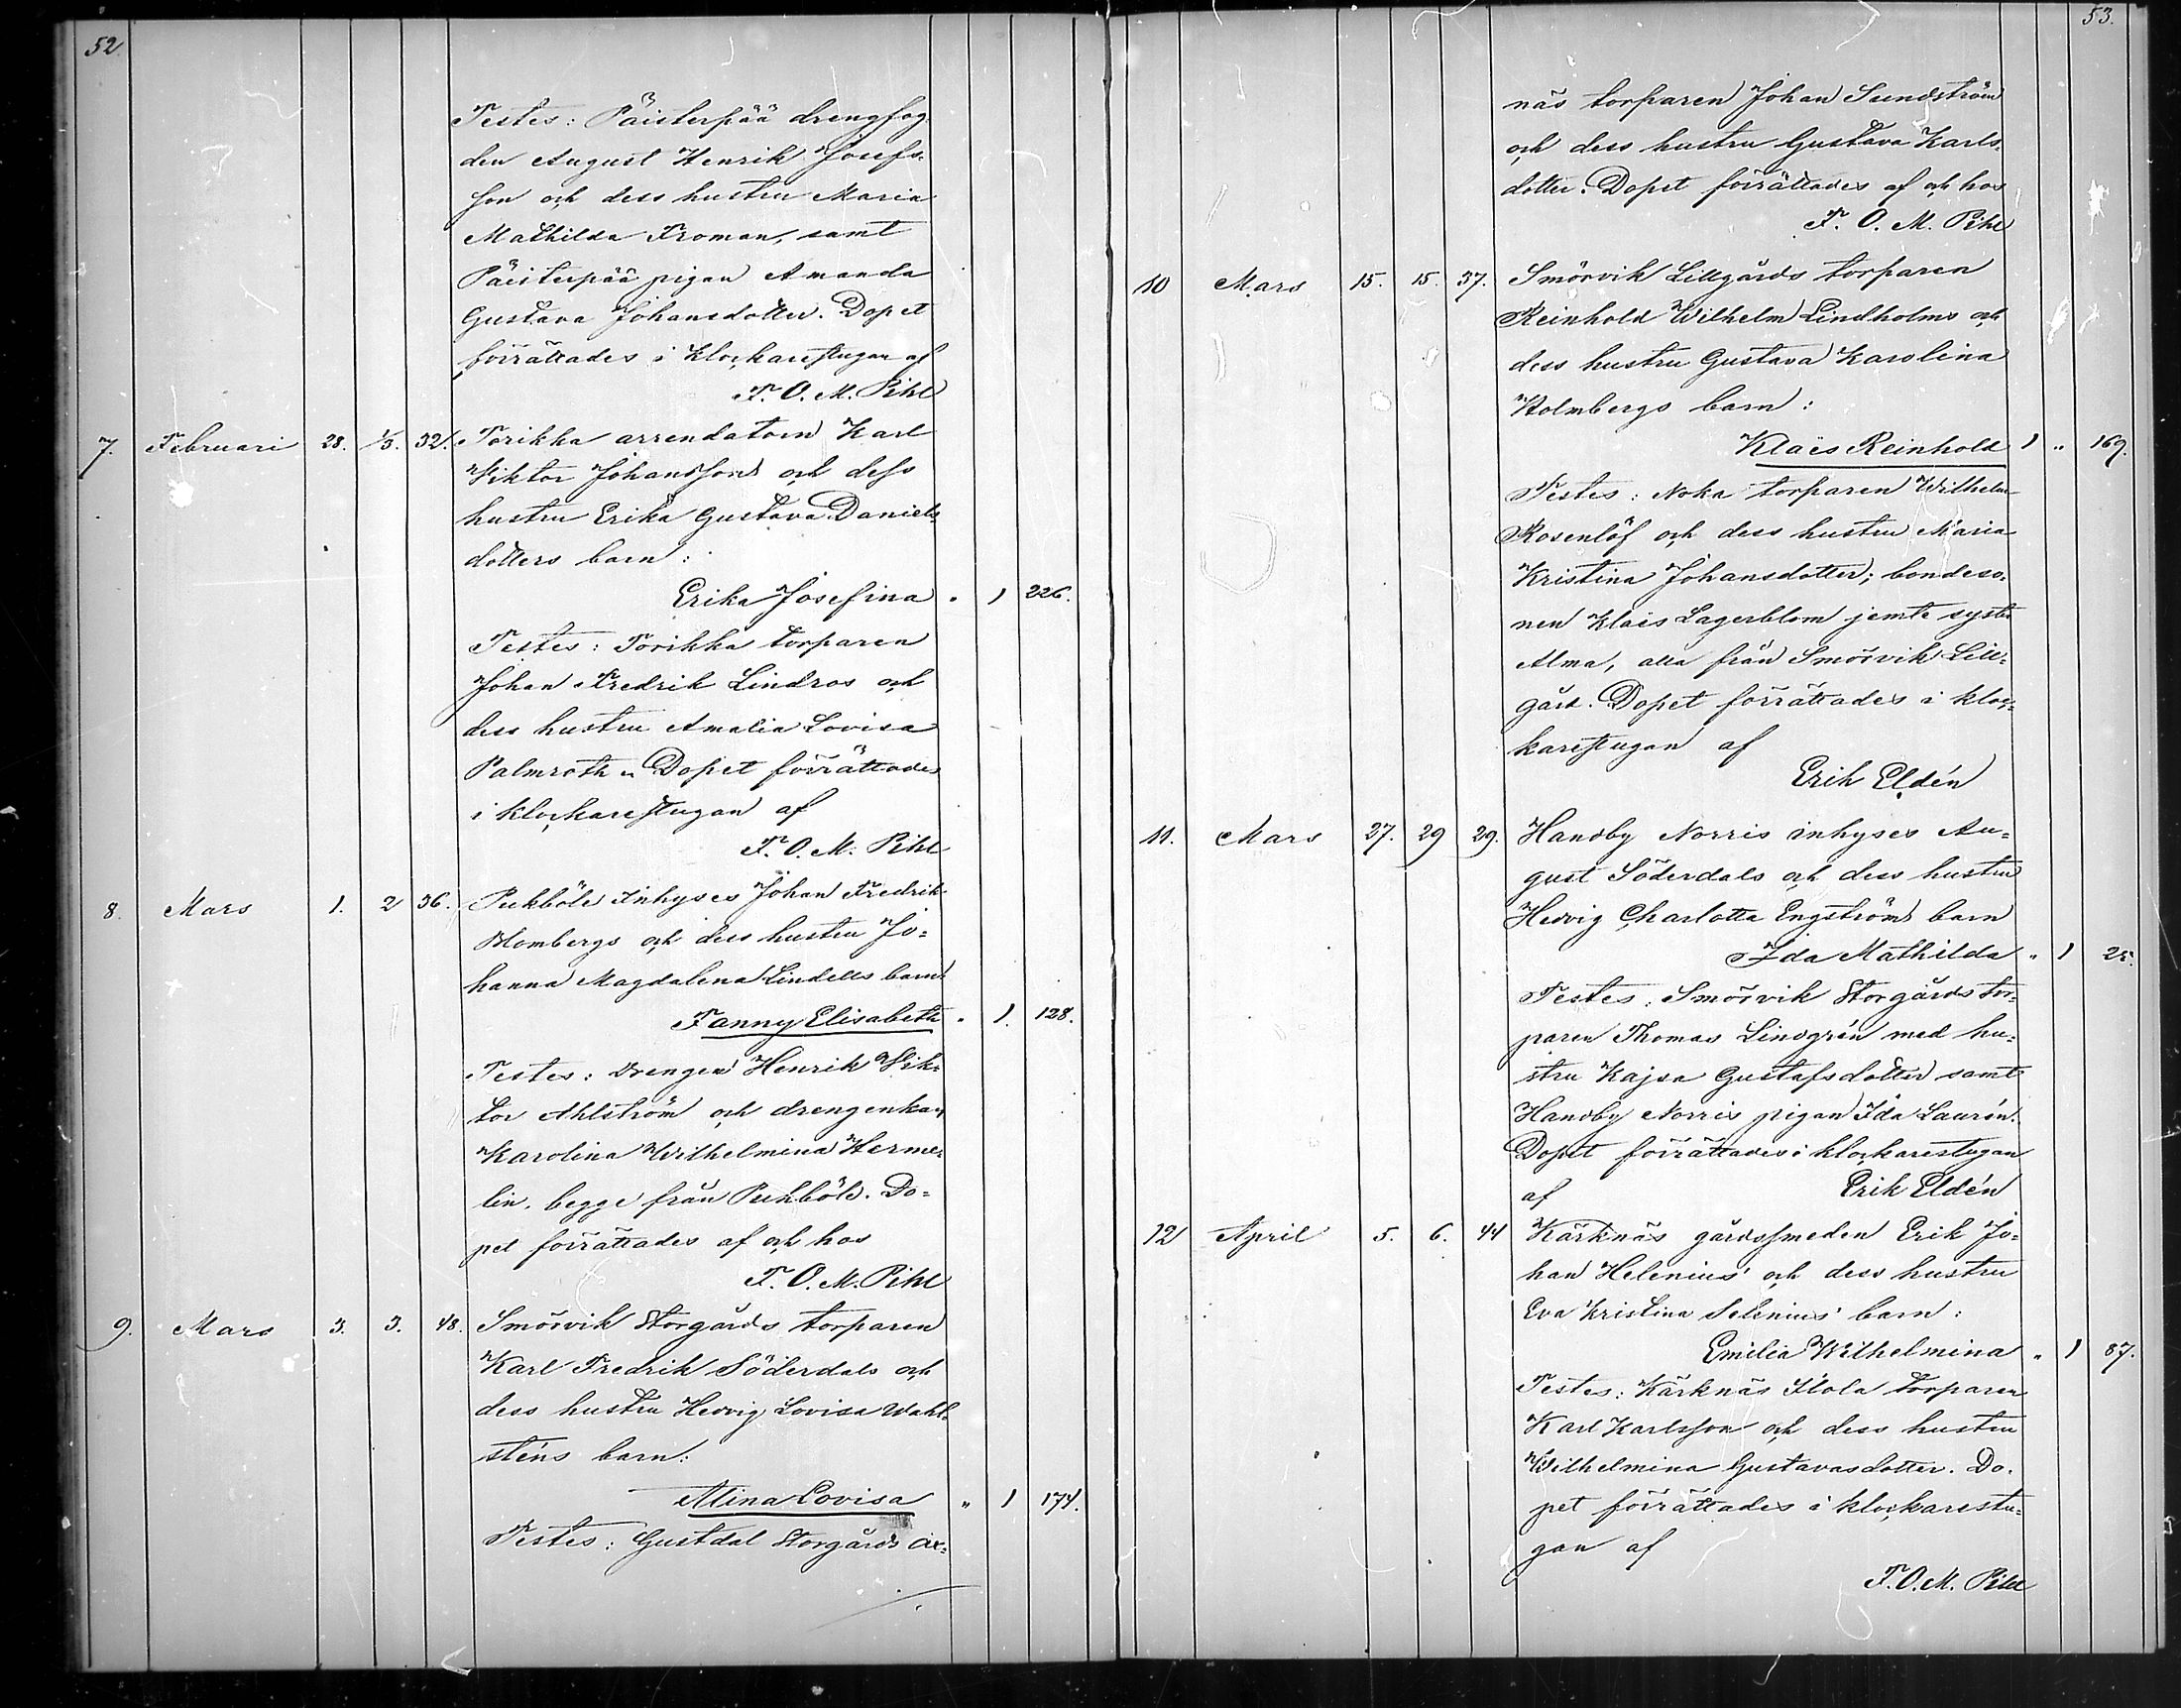 52.
Testes: Päisterpää drengfog-
den August Henrik Josefs-
son och dess hustru Maria
Mathilda Froman, samt
Päisterpää pigan Amanda
Gustava Johansdotter. Dopet
förrättades i klockarestugan af
F. O. M. Pihl
7. Februari 28. 1/3. 32. Torikka arrendatorn Karl
Viktor Johanssons och dess
hustru Erika Gustava Daniels-
dotters barn:
Erika Josefina " 1 226.
Testes: Torikka torparen
Johan Fredrik Lindros och
dess hustru Amalia Lovisa
Palmroth. Dopet förrättades
i klockarestugan af
F. O. M. Pihl
8. Mars 1. 2 36. Pukböle Inhyses Johan Fredrik
Blombergs och dess hustru Jo=
hanna Magdalena Lindells barn:
Fanny Elisabeth " 1. 128.
Testes: drengen Henrik Vik-
tor Ahlström och drengenkan
Karolina Wilhelmina Herme-
lin, begge från Pukböle. Do=
pet förrättades af och hos
F. O. M. Pihl
9. Mars 3. 3. 48. Smörvik Storgårds torparen
Karl Fredrik Söderdals och
dess hustru Hedvig Lovisa Wahl-
sténs barn:
Alina Lovisa " 1 174.
Testes: Gustdal Storgårds
53.
näs torparen Johan Sundström
och dess hustru Gustava Karls-
dotter. Dopet förrättades af och hos
F. O. M. Pihl
10 Mars 15. 15. 37. Smörvik Lillgårds torparen
Reinhold Wilhelm Lindholms och
dess hustru Gustava Karolina
Holmbergs barn:
Klaës Reinhold 1 " 169.
Testes: Noka torparen Wilhelm
Rosenlöf och dess hustru Maria
Kristina Johansdotter; bondeso-
nen Klaës Lagerblom jemte syster
Alma, alla från Smörvik Lill-
gård. Dopet förrättades i kloc-
karestugan af
Erik Eldén
11. Mars 27. 29 29. Handby Norris inhyses Au=
gust Söderdals och dess hustru
Hedvig Charlotta Engströms barn
Ida Mathilda " 1 25.
Testes: Smörvik Storgårds tor-
paren Thomas Lindgrén med hu-
stru Kajsa Gustafsdotter samt
Handby Norris pigan Ida Laurén.
Dopet förrättades i klockarestugan
af Erik Eldén
12 April 5. 6. 44 Kärknäs gårdssmeden Erik Jo=
han Helenius' och dess hustru
Eva Kristina Selenius' barn:
Emilia Wilhelmina " 1 87.
Testes: Kärknäs Ilola torparen
Karl Karlsson och dess hustru
Wilhelmina Gustavasdotter. Do-
pet förrättades i klockarestu-
gan af
F. O. M. Pihl